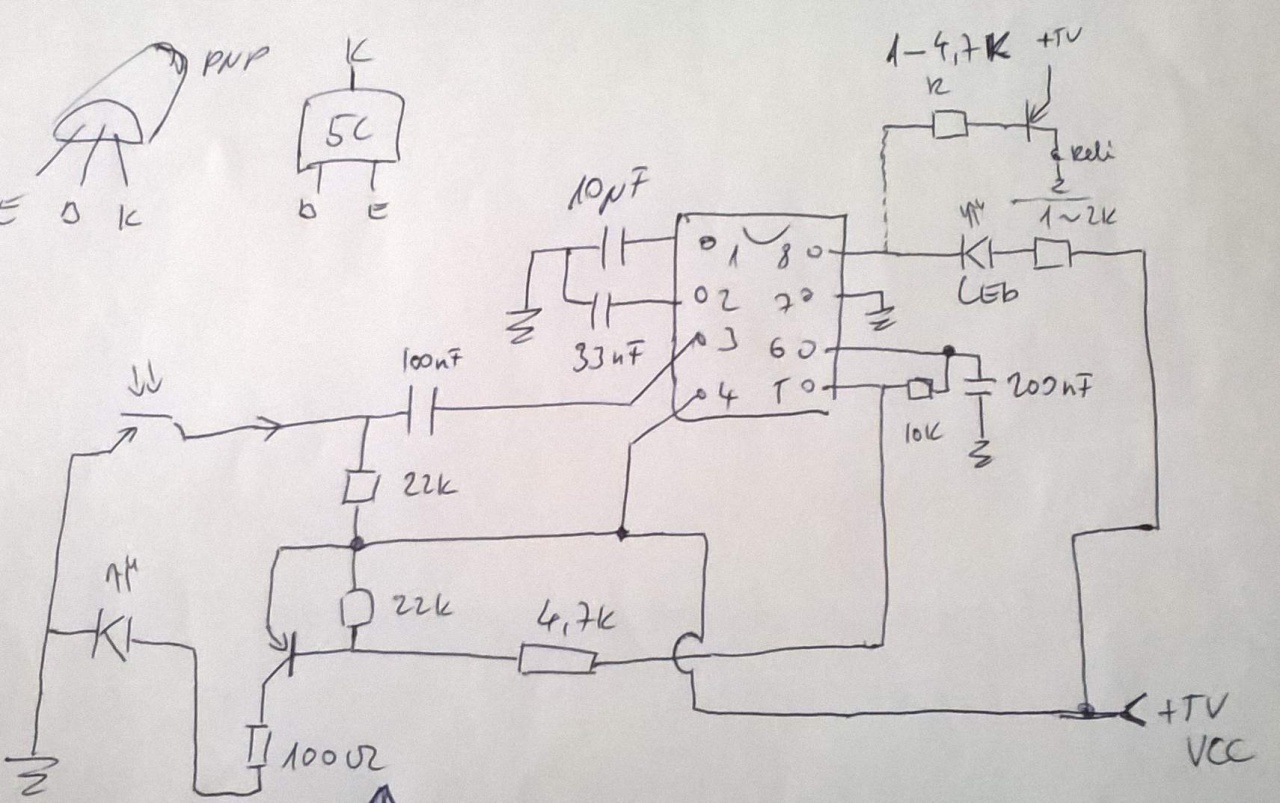 PNP
E B K
K
5C
B E
1-4,7K +5V
R
Reli
2
1~2K
10µF
33nF
1 8
2 7
3 6
4 5
LED
100nF
200nF
10K
22K
22K
4,7K
100Ω
+5V
VCC